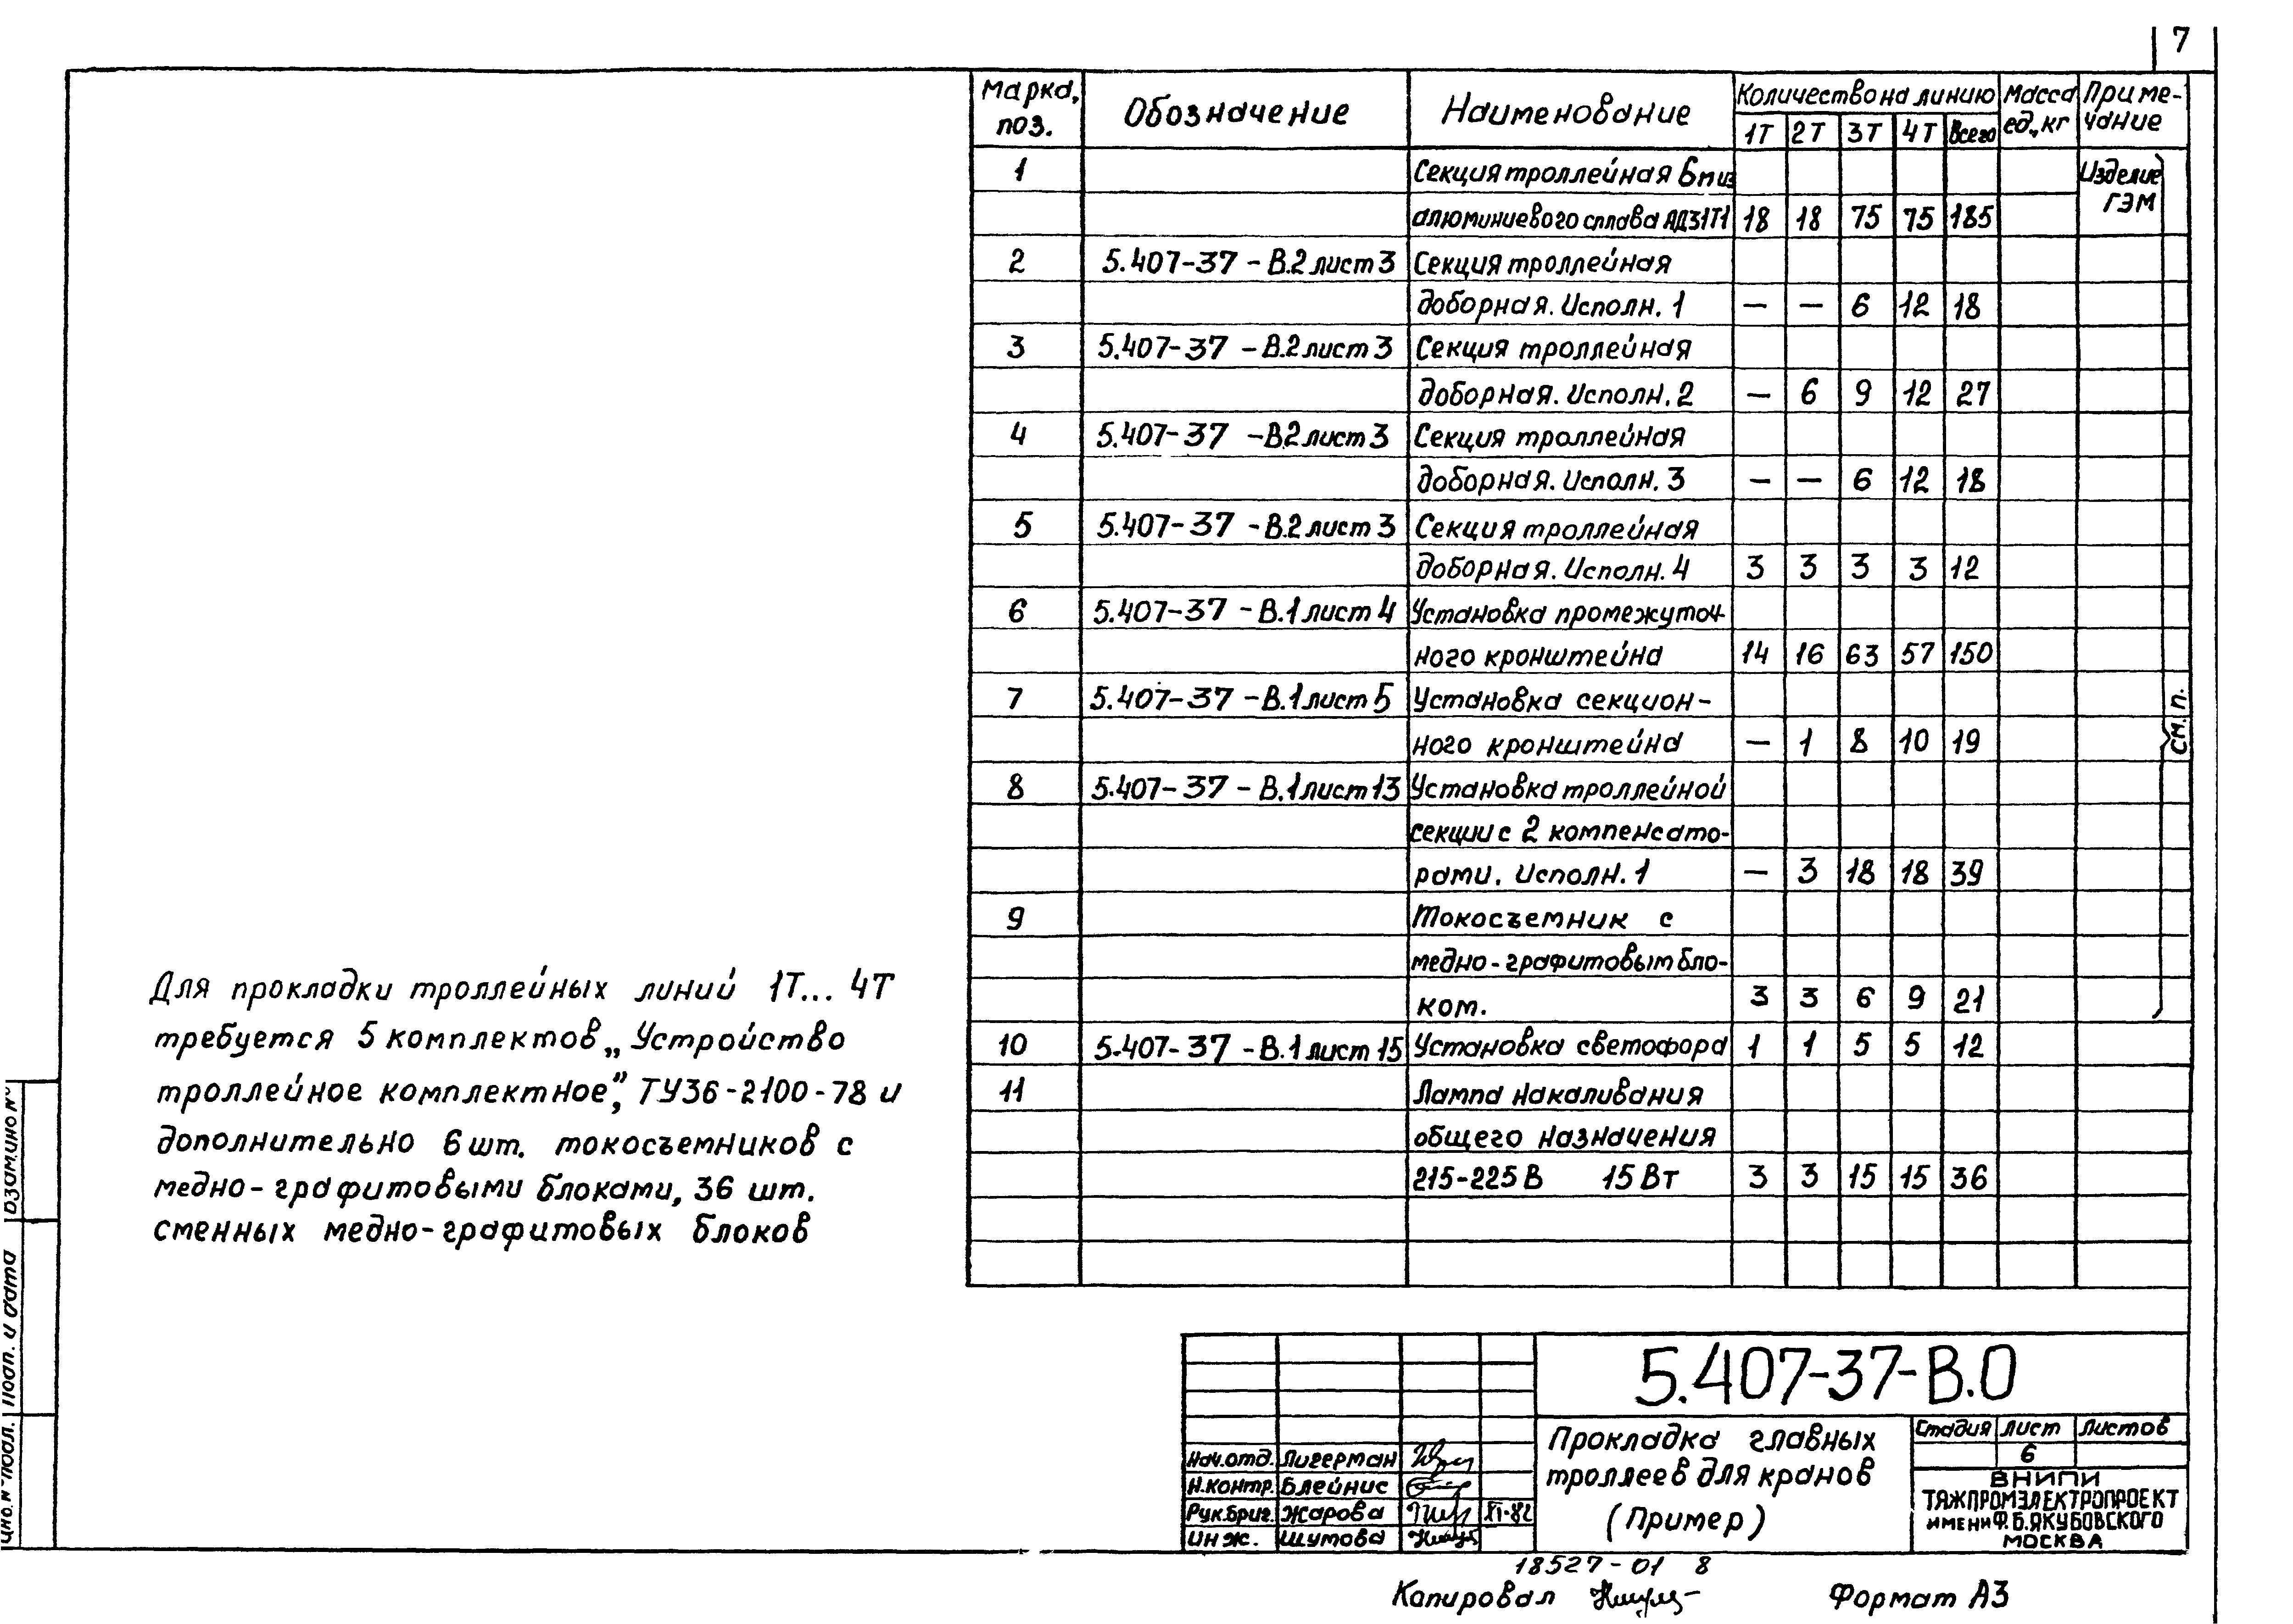 7
Марка, поз. Обозначение Наименование Количество на линию Масса ед., кг Приме-чание
1Т 2Т 3Т 4Т Всего
1 Секция троллейная 6п из Изделие ГЭМ
алюминиевого сплава АД31Т1 18 18 75 75 185
2 5.407-37 -В.2 лист 3 Секция троллейная
доборная. Исполн. 1 — — 6 12 18
3 5.407-37 -В.2 лист 3 Секция троллейная
доборная. Исполн. 2 — 6 9 12 27
4 5.407-37 -В2 лист 3 Секция троллейная
доборная. Исполн. 3 — — 6 12 18
5 5.407-37 -В.2 лист 3 Секция троллейная
доборная. Исполн. 4 3 3 3 3 12
6 5.407-37 -В.1 лист 4 Установка промежуточ-
ного кронштейна 14 16 63 57 150
7 5.407-37 -В.1 лист 5 Установка секцион-
ного кронштейна — 1 8 10 19
См. п.
8 5.407-37 -В.1 лист 13 Установка троллейной
секции с 2 компенсато-
рами. Исполн. 1 — 3 18 18 39
9 Токосъемник с
медно-графитовым бло-
ком. 3 3 6 9 21
10 5.407-37 -В.1 лист 15 Установка светофора 1 1 5 5 12
11 Лампа накаливания
общего назначения
215-225 В 15 Вт 3 3 15 15 36
Для прокладки троллейных линий 1Т... 4Т
требуется 5 комплектов „Устройство
троллейное комплектное”, ТУ36-2100-78 и
дополнительно 6 шт. токосъемников с
медно-графитовыми блоками, 36 шт.
сменных медно-графитовых блоков
Взам. инв №
Подп. и дата
Инв. № подл.
5.407-37-В.0
Прокладка главных
троллеев для кранов
(Пример)
Стадия Лист Листов
6
ВНИПИ
ТЯЖПРОМЭЛЕКТРОПРОЕКТ
ИМЕНИ Ф.Б.ЯКУБОВСКОГО
МОСКВА
Нач.отд. Лигерман
Н.контр. Блейнис
Рук.бриг. Жарова XI-82
Инж. Шутова
18527-01 8
Копировал Формат А3